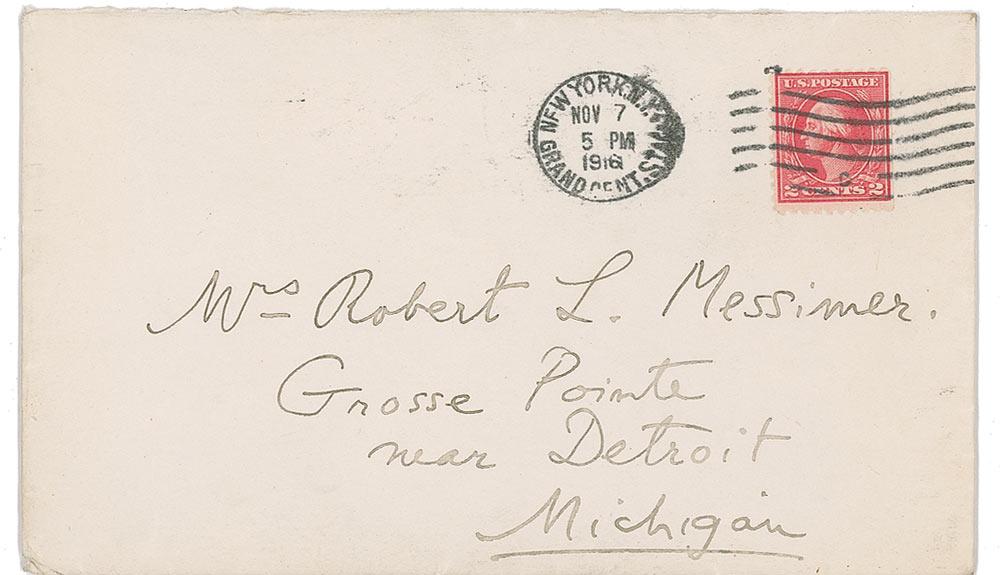 NEW YORK, N.Y.
NOV 7
5 PM
1916
GRAND CENT. STA.
U.S. POSTAGE
2 CENTS 2
Mrs Robert L. Messimer.
Grosse Pointe
near Detroit
Michigan